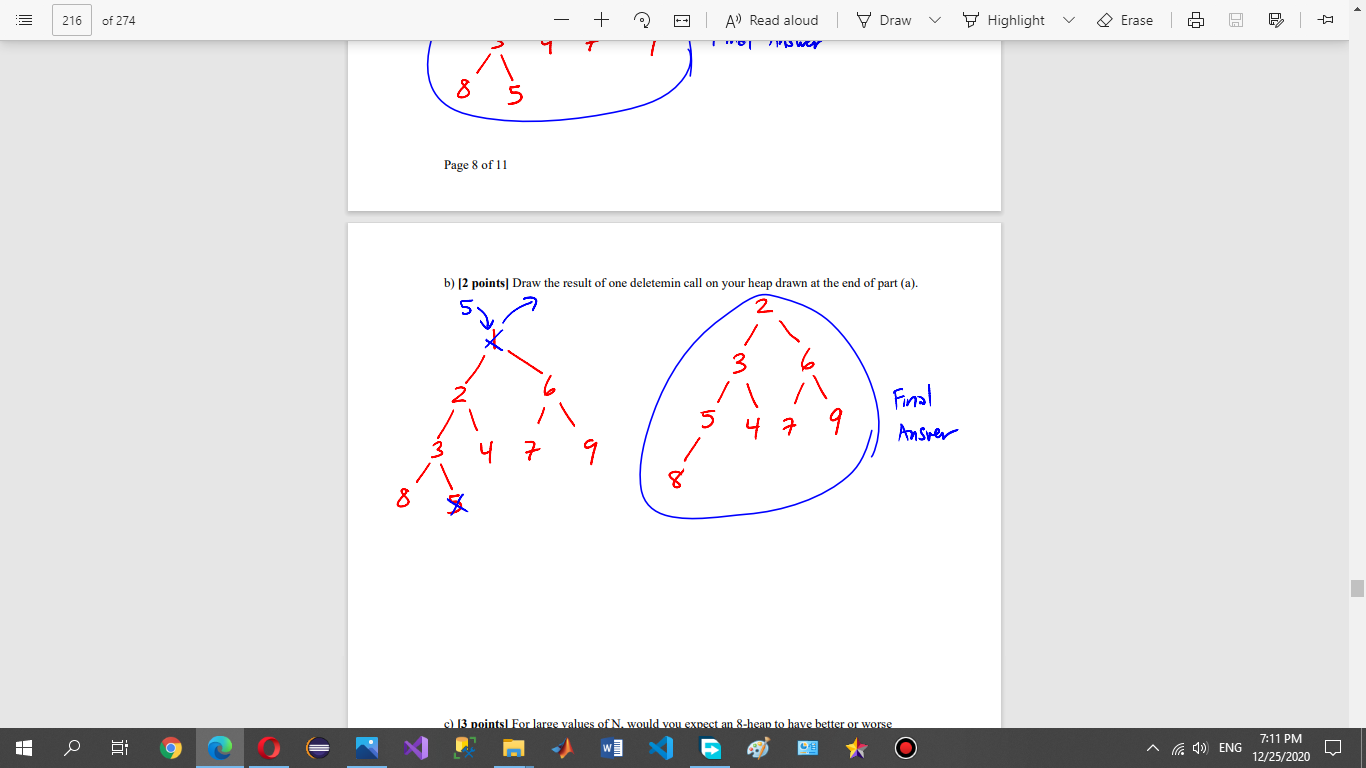 216 of 274 Read aloud Draw Highlight Erase
8 5
Page 8 of 11
b) [2 points] Draw the result of one deletemin call on your heap drawn at the end of part (a).
5
1
2 6
3 4 7 9
8 5
2
3 6
5 4 7 9
8
Final
Answer
c) [3 points] For large values of N, would you expect an 8-heap to have better or worse
ENG
7:11 PM
12/25/2020